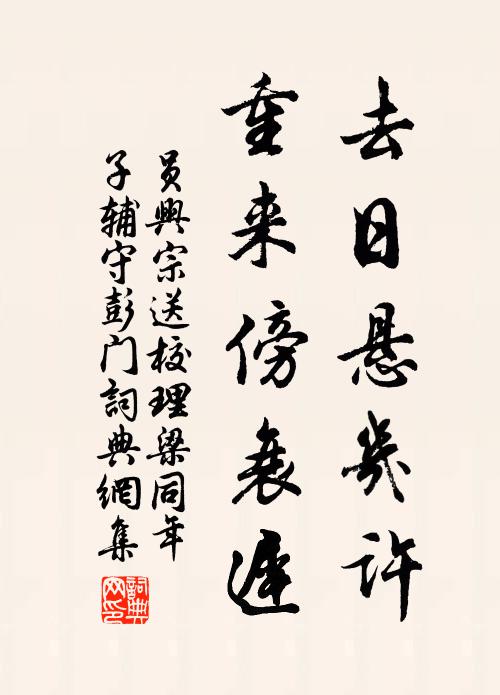 去日悬几许
重来傍衰迟
员興宗送校理梁同年
子辅守彭门詞典網集
詞典网印